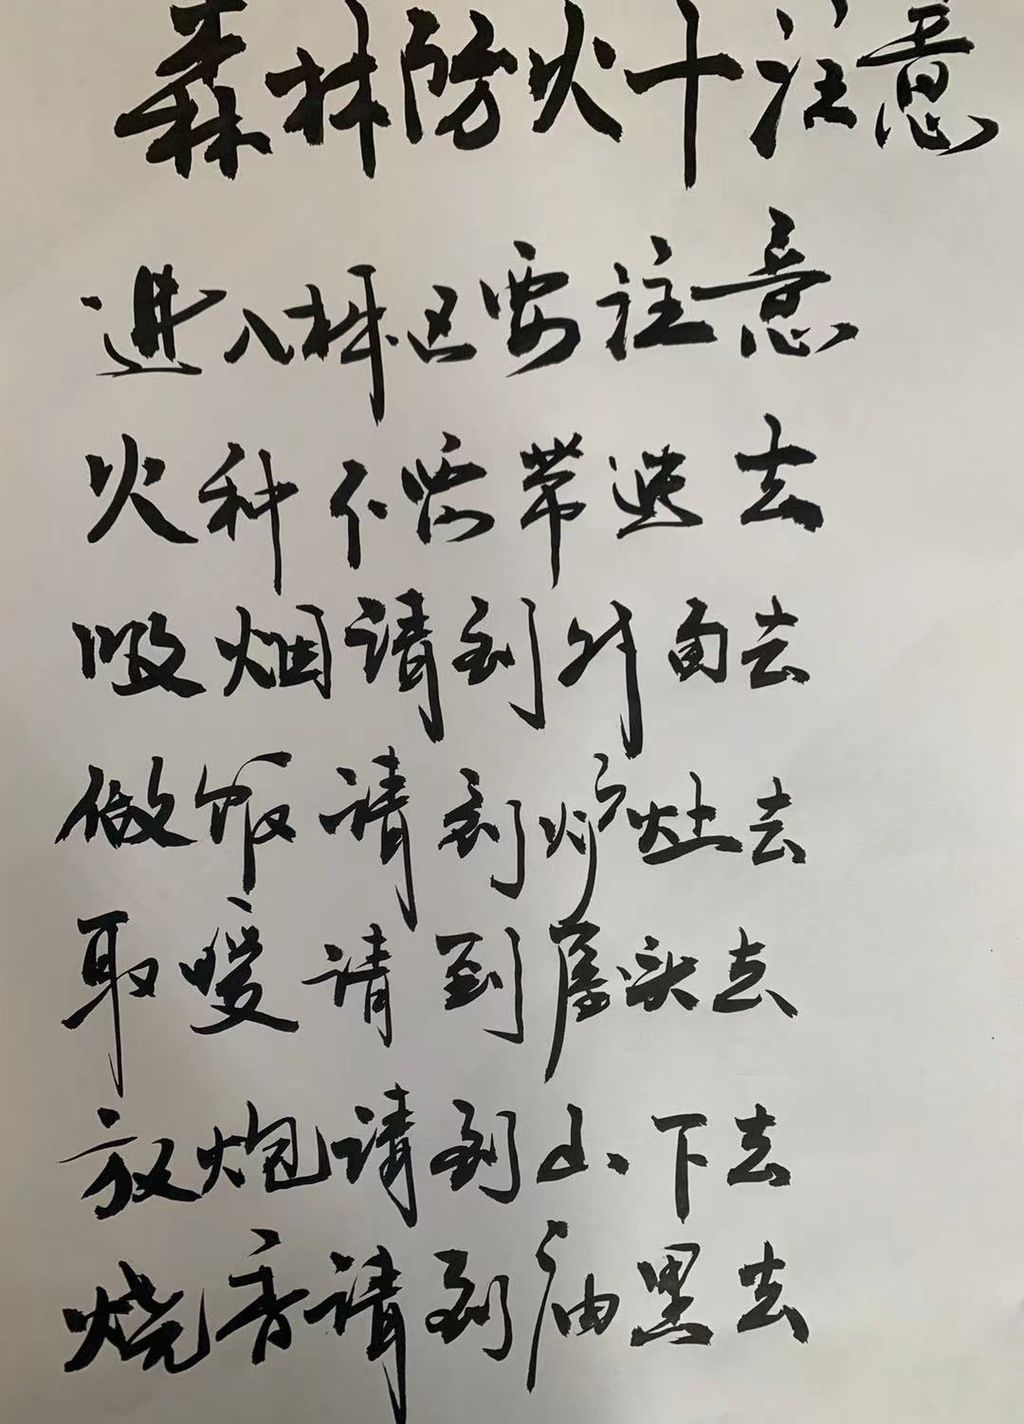 森林防火十注意
进入林区要注意
火种不要带进去
吸烟请到外面去
做饭请到炉灶去
取暖请到屋头去
放炮请到山下去
烧香请到庙里去